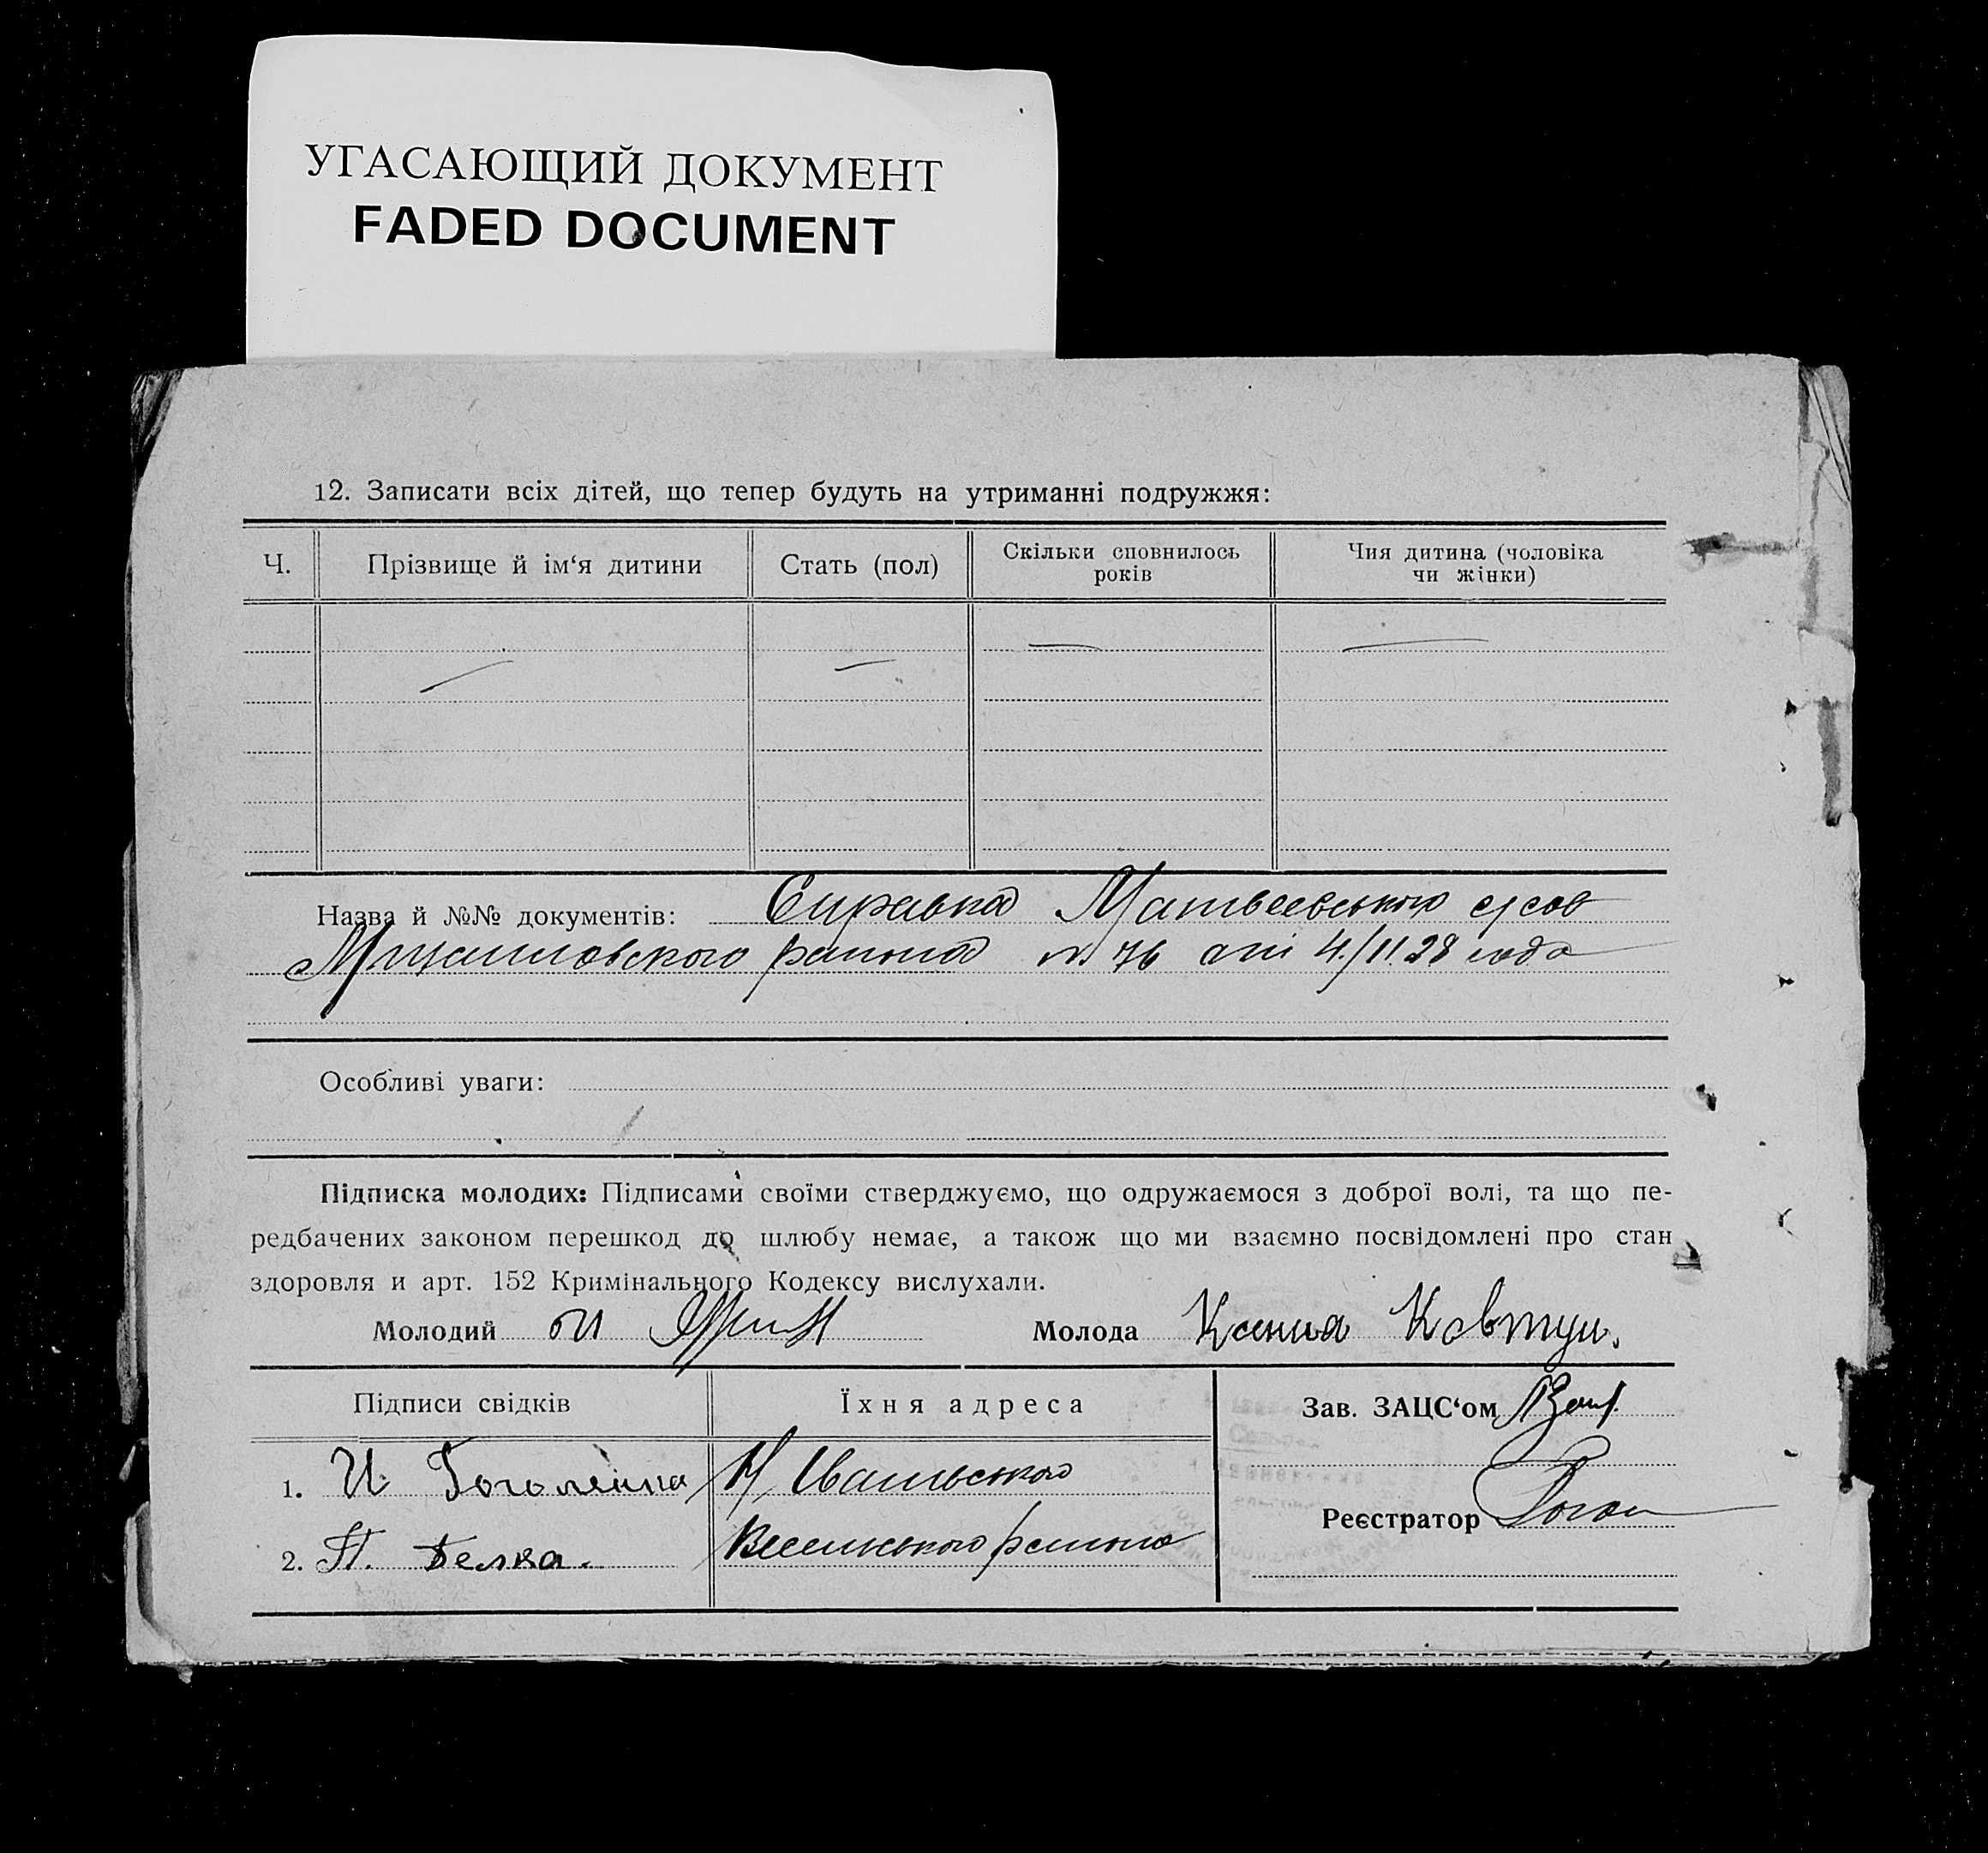 УГАСАЮЩИЙ ДОКУМЕНТ
FADED DOCUMENT
12. Записати всіх дітей, що тепер будуть на утриманні подружжя:
Ч.
Прізвище й ім‘я дитини
Стать (пол)
Скільки сповнилось
років
Чия дитина (чоловіка
чи жінки)
Назва й №№ документів: Справка Матвеевського с/сов
района № 76 от 4/II 28 года
Особливі уваги:
Підписка молодих: Підписами своїми стверджуємо, що одружаємося з доброї волі, та що пе-
редбачених законом перешкод до шлюбу немає, а також що ми взаємно посвідомлені про стан
здоровля и арт. 152 Кримінального Кодексу вислухали.
Молодий
Молода Ксения Ковтун.
Підписи свідків
Їхня адреса
Зав. ЗАЦС‘ом
1. И Гоголенка
2. П. Белка.
района
Реєстратор